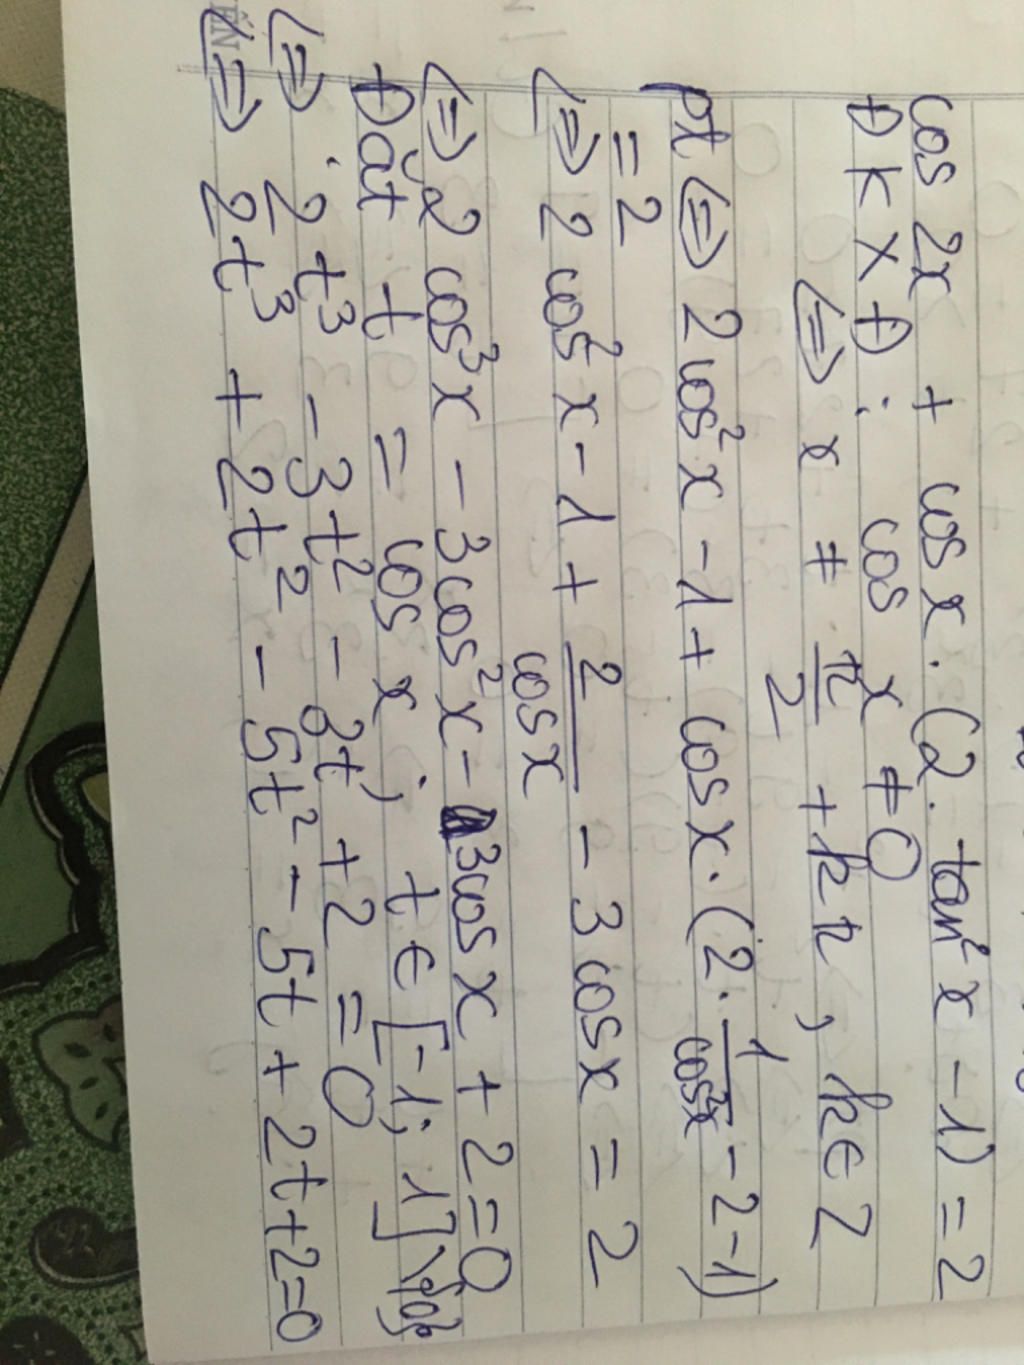 cos 2x + cos x . (2 . tan² x - 1) = 2
ĐKXĐ : cos x ≠ 0
<=> x ≠ π/2 + kπ , k ∈ Z
pt <=> 2cos² x - 1 + cos x . (2 . 1/cos²x - 2 - 1)
= 2
<=> 2 cos² x - 1 + 2/cos x - 3 cos x = 2
<=> 2 cos³ x - 3 cos² x - 3 cos x + 2 = 0
Đặt t = cos x ; t ∈ [-1; 1] \ {0}
<=> 2t³ - 3t² - 3t + 2 = 0
<=> 2t³ + 2t² - 5t² - 5t + 2t + 2 = 0